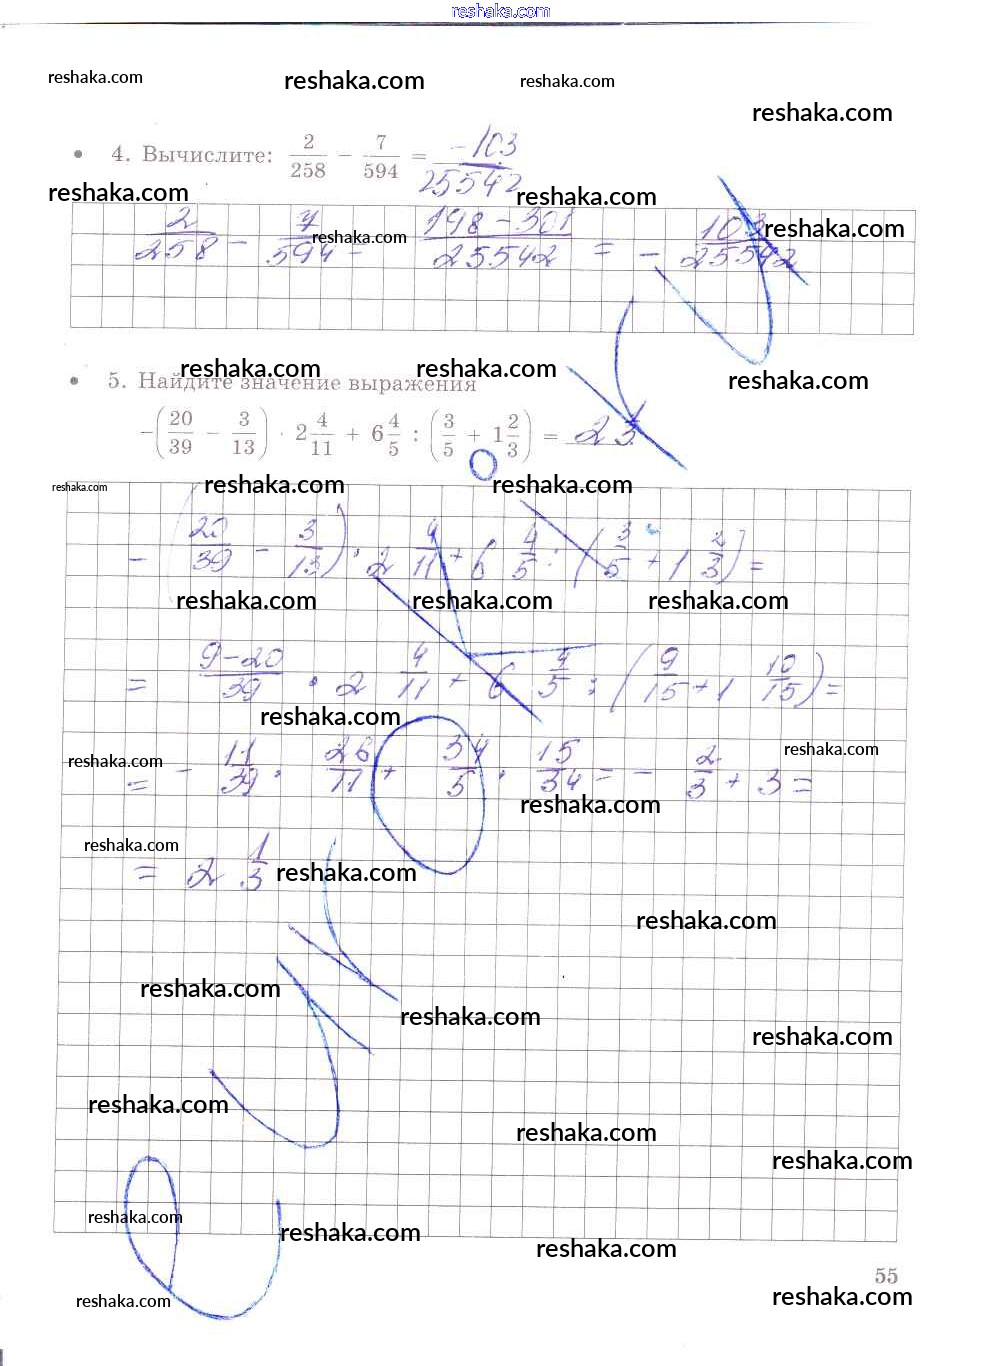 reshaka.com
reshaka.com reshaka.com reshaka.com
reshaka.com
4. Вычислите: 2/258 − 7/594 = −103/25542
reshaka.com reshaka.com
2/258 − 7/594 = (198 − 301)/25542 = − 103/25542
reshaka.com reshaka.com
reshaka.com reshaka.com reshaka.com
5. Найдите значение выражения
−(20/39 − 3/13) · 2 4/11 + 6 4/5 : (3/5 + 1 2/3) =
reshaka.com reshaka.com reshaka.com
− (20/39 − 3/13) · 2 4/11 + 6 4/5 : (3/5 + 1 2/3) =
reshaka.com reshaka.com reshaka.com
= (9 − 20)/39 · 2 4/11 + 6 4/5 : (9/15 + 1 10/15) =
reshaka.com
= − 11/39 · 26/11 + 34/5 · 15/34 = − 2/3 + 3 =
reshaka.com reshaka.com
reshaka.com
reshaka.com
= 2 1/3
reshaka.com
reshaka.com
reshaka.com
reshaka.com
reshaka.com
reshaka.com
reshaka.com
reshaka.com
reshaka.com
reshaka.com
reshaka.com
55
reshaka.com reshaka.com